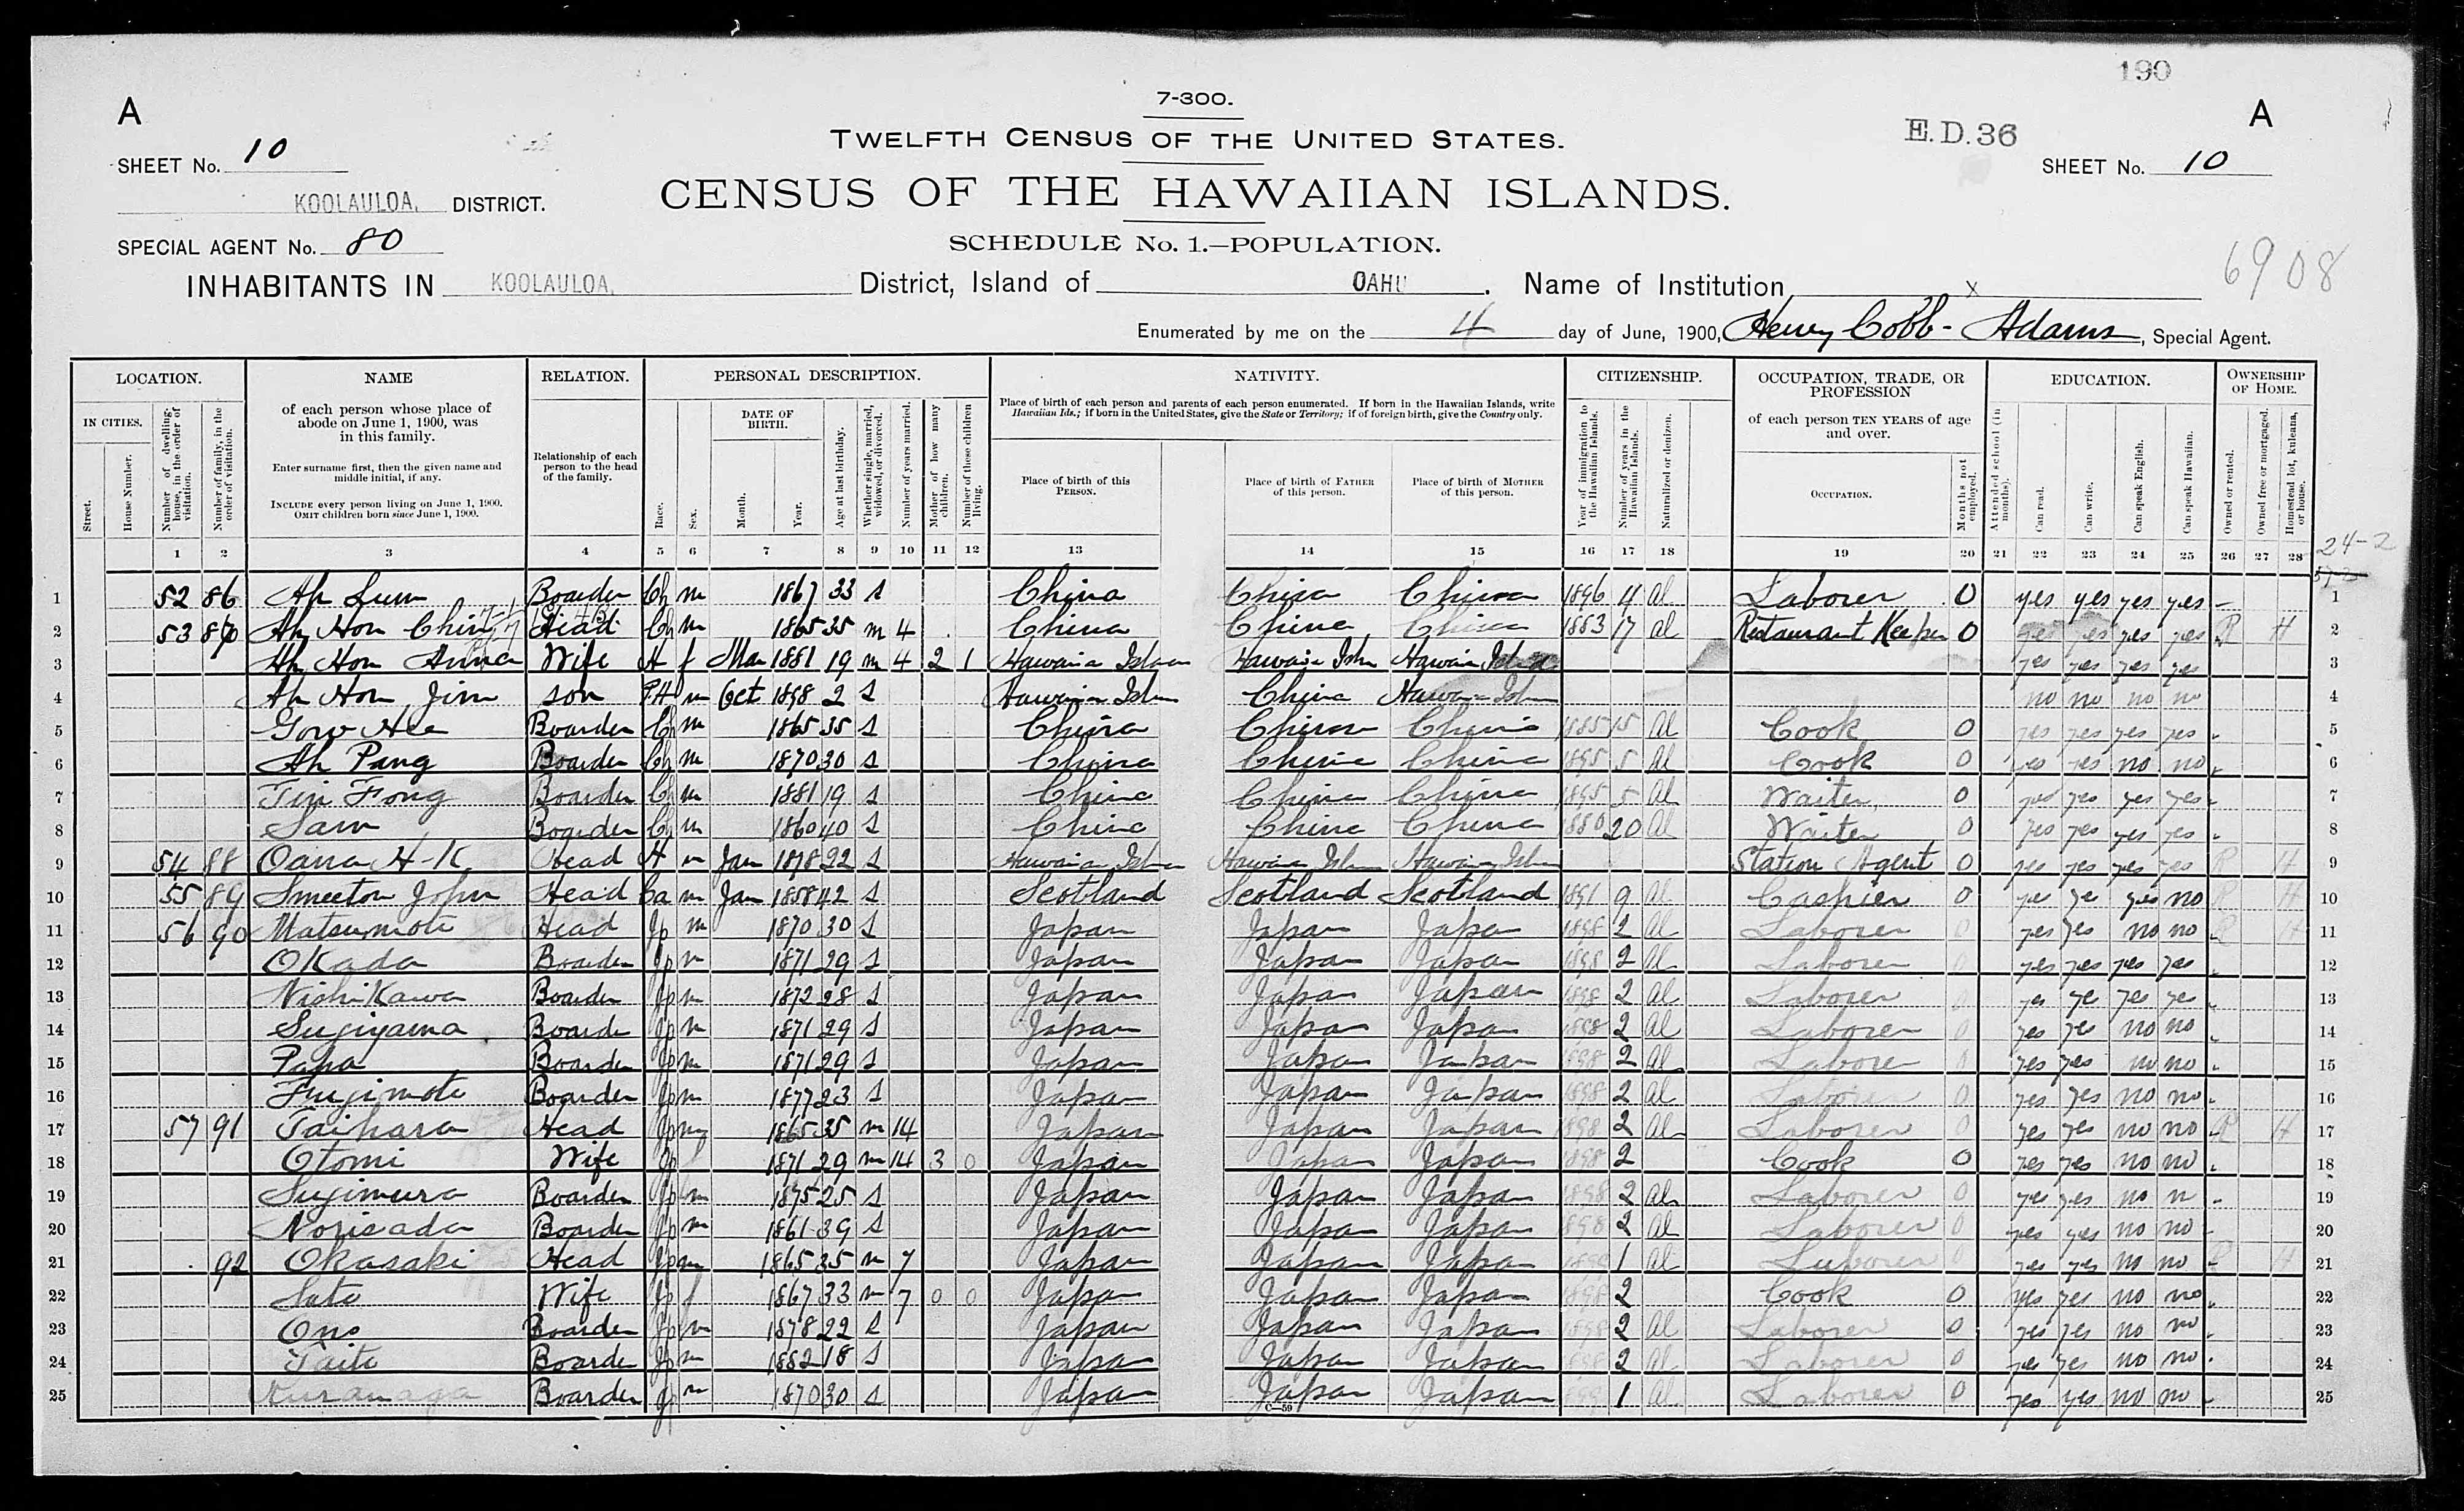 190
7-300.
A
A
TWELFTH CENSUS OF THE UNITED STATES.
E.D. 36
SHEET No. 10
SHEET No. 10
CENSUS OF THE HAWAIIAN ISLANDS.
KOOLAULOA. DISTRICT.
SPECIAL AGENT No. 80
SCHEDULE No. 1.—POPULATION.
6908
INHABITANTS IN KOOLAULOA. District, Island of OAHU. Name of Institution x
Enumerated by me on the 4 day of June, 1900, Henry Cobb-Adams, Special Agent.
LOCATION. NAME RELATION. PERSONAL DESCRIPTION. NATIVITY. CITIZENSHIP. OCCUPATION, TRADE, OR PROFESSION EDUCATION. OWNERSHIP OF HOME.
IN CITIES.
Street.
House Number.
Number of dwelling-house, in the order of visitation.
Number of family, in the order of visitation.
of each person whose place of abode on June 1, 1900, was in this family.
Enter surname first, then the given name and middle initial, if any.
INCLUDE every person living on June 1, 1900.
OMIT children born since June 1, 1900.
Relationship of each person to the head of the family.
Race.
Sex.
DATE OF BIRTH.
Month.
Year.
Age at last birthday.
Whether single, married, widowed, or divorced.
Number of years married.
Mother of how many children.
Number of these children living.
Place of birth of each person and parents of each person enumerated. If born in the Hawaiian Islands, write Hawaiian Ids.; if born in the United States, give the State or Territory; if of foreign birth, give the Country only.
Place of birth of this PERSON.
Place of birth of FATHER of this person.
Place of birth of MOTHER of this person.
Year of immigration to the Hawaiian Islands.
Number of years in the Hawaiian Islands.
Naturalized or denizen.
of each person TEN YEARS of age and over.
OCCUPATION.
Months not employed.
Attended school (in months).
Can read.
Can write.
Can speak English.
Can speak Hawaiian.
Owned or rented.
Owned free or mortgaged.
Homestead lot, kuleana, or house.
1 2 3 4 5 6 7 8 9 10 11 12 13 14 15 16 17 18 19 20 21 22 23 24 25 26 27 28
24-2
1 52 86 Ah Lum Boarder Ch m 1867 33 S China China China 1896 4 Al Laborer 0 yes yes yes yes 1
2 53 87 Ah Hon Chin Head Ch m 1865 35 m 4 China China China 1883 17 Al Restaurant Keeper 0 yes yes yes yes R H 2
3 Ah Hon Anna Wife H f Mar 1881 19 m 4 2 1 Hawaiia Islan Hawaiia Islan Hawaiia Island yes yes yes yes 3
4 Ah Hon Jim son P.H m Oct 1898 2 S Hawaiia Islan China Hawaiia Islan no no no no 4
5 Gow Hee Boarder Ch m 1865 35 S China China China 1885 15 Al Cook 0 yes yes yes yes 5
6 Ah Pang Boarder Ch m 1870 30 S China China China 1895 5 Al Cook 0 yes yes no no 6
7 Tin Fong Boarder Ch m 1881 19 S China China China 1895 5 Al Waiter 0 yes yes yes yes 7
8 Sam Boarder Ch m 1860 40 S China China China 1880 20 Al Waiter 0 yes yes yes yes 8
9 54 88 Oana H-K Head H m Jan 1878 22 S Hawaiian Islan Hawaiian Islan Hawaiian Islan Station Agent 0 yes yes yes yes R H 9
10 55 89 Smeeton John Head Ca m Jan 1858 42 S Scotland Scotland Scotland 1891 9 Al Cashier 0 yes ye yes no R H 10
11 56 90 Matsumoto Head Jp m 1870 30 S Japan Japan Japan 1898 2 Al Laborer 0 yes yes no no R H 11
12 Okada Boarder Jp m 1871 29 S Japan Japan Japan 1898 2 Al Laborer 0 yes yes yes yes 12
13 Nishikawa Boarder Jp m 1872 28 S Japan Japan Japan 1898 2 Al Laborer 0 yes ye yes ye 13
14 Sugiyama Boarder Jp m 1871 29 S Japan Japan Japan 1898 2 Al Laborer 0 yes yes no no 14
15 Papa Boarder Jp m 1871 29 S Japan Japan Japan 1898 2 Al Laborer 0 yes yes no no 15
16 Fugimoto Boarder Jp m 1877 23 S Japan Japan Japan 1898 2 Al Laborer 0 yes yes no no 16
17 57 91 Taihara Head Jp m 1865 35 m 14 Japan Japan Japan 1898 2 Al Laborer 0 yes yes no no R H 17
18 Otomi Wife Jp f 1871 29 m 14 3 0 Japan Japan Japan 1898 2 Cook 0 yes yes no no 18
19 Sugimura Boarder Jp m 1875 25 S Japan Japan Japan 1898 2 Al Laborer 0 yes yes no n 19
20 Norisada Boarder Jp m 1861 39 S Japan Japan Japan 1898 2 Al Laborer 0 yes yes no no 20
21 92 Okasaki Head Jp m 1865 35 m 7 Japan Japan Japan 1 Al Laborer 0 yes yes no no R H 21
22 Sato Wife Jp f 1867 33 m 7 0 0 Japan Japan Japan 1898 2 Cook 0 yes yes no no 22
23 Ono Boarder Jp m 1878 22 S Japan Japan Japan 1898 2 Al Laborer 0 yes yes no no 23
24 Taito Boarder Jp m 1882 18 S Japan Japan Japan 1898 2 Al Laborer 0 yes yes no no 24
25 Kuranaga Boarder Jp m 1870 30 S Japan Japan Japan 1 Al Laborer 0 yes yes no no 25
C—59